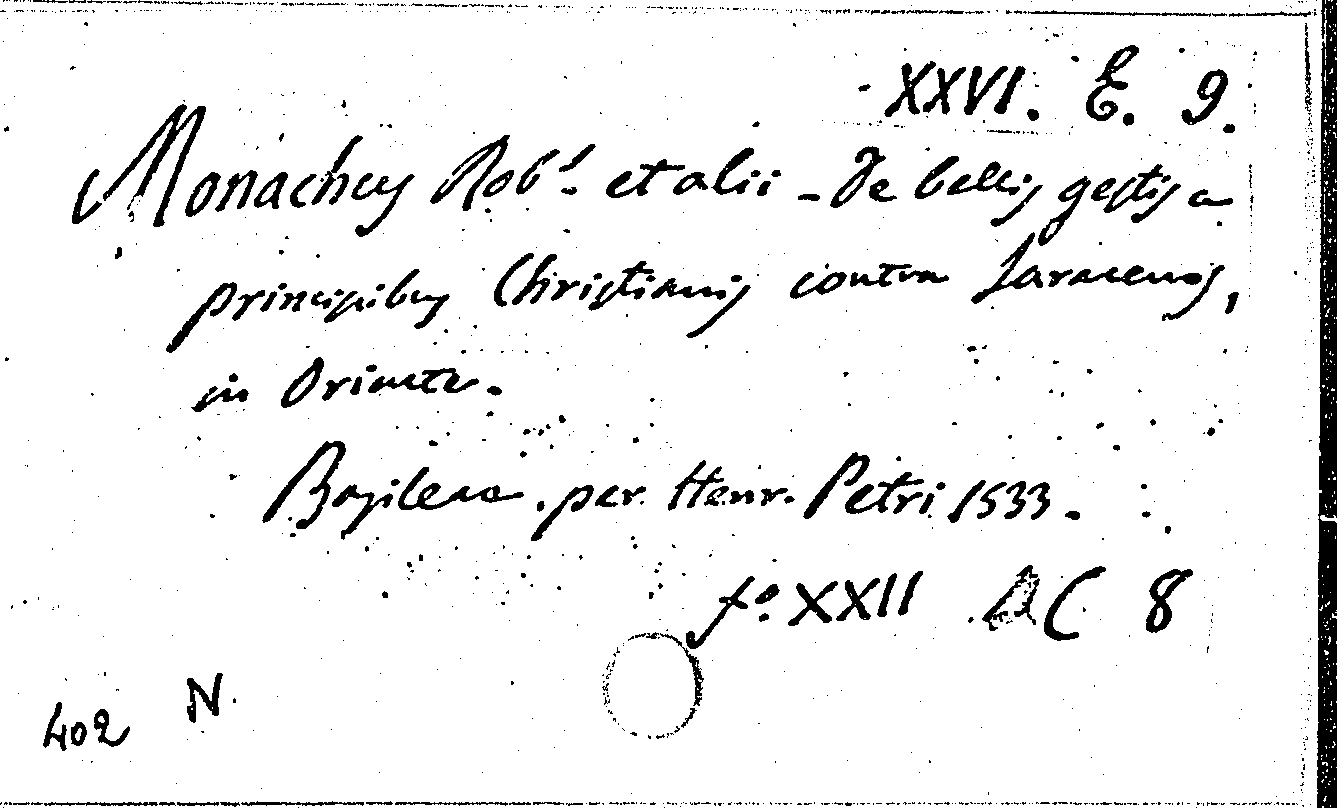 XXVI. E. 9.
Monachus Robt. et alii - De bellis gestis a
principibus Christianis contra Saracenos,
in Oriente.
Basileae. per Henr. Petri 1533.
fo. XXII C 8
N
402